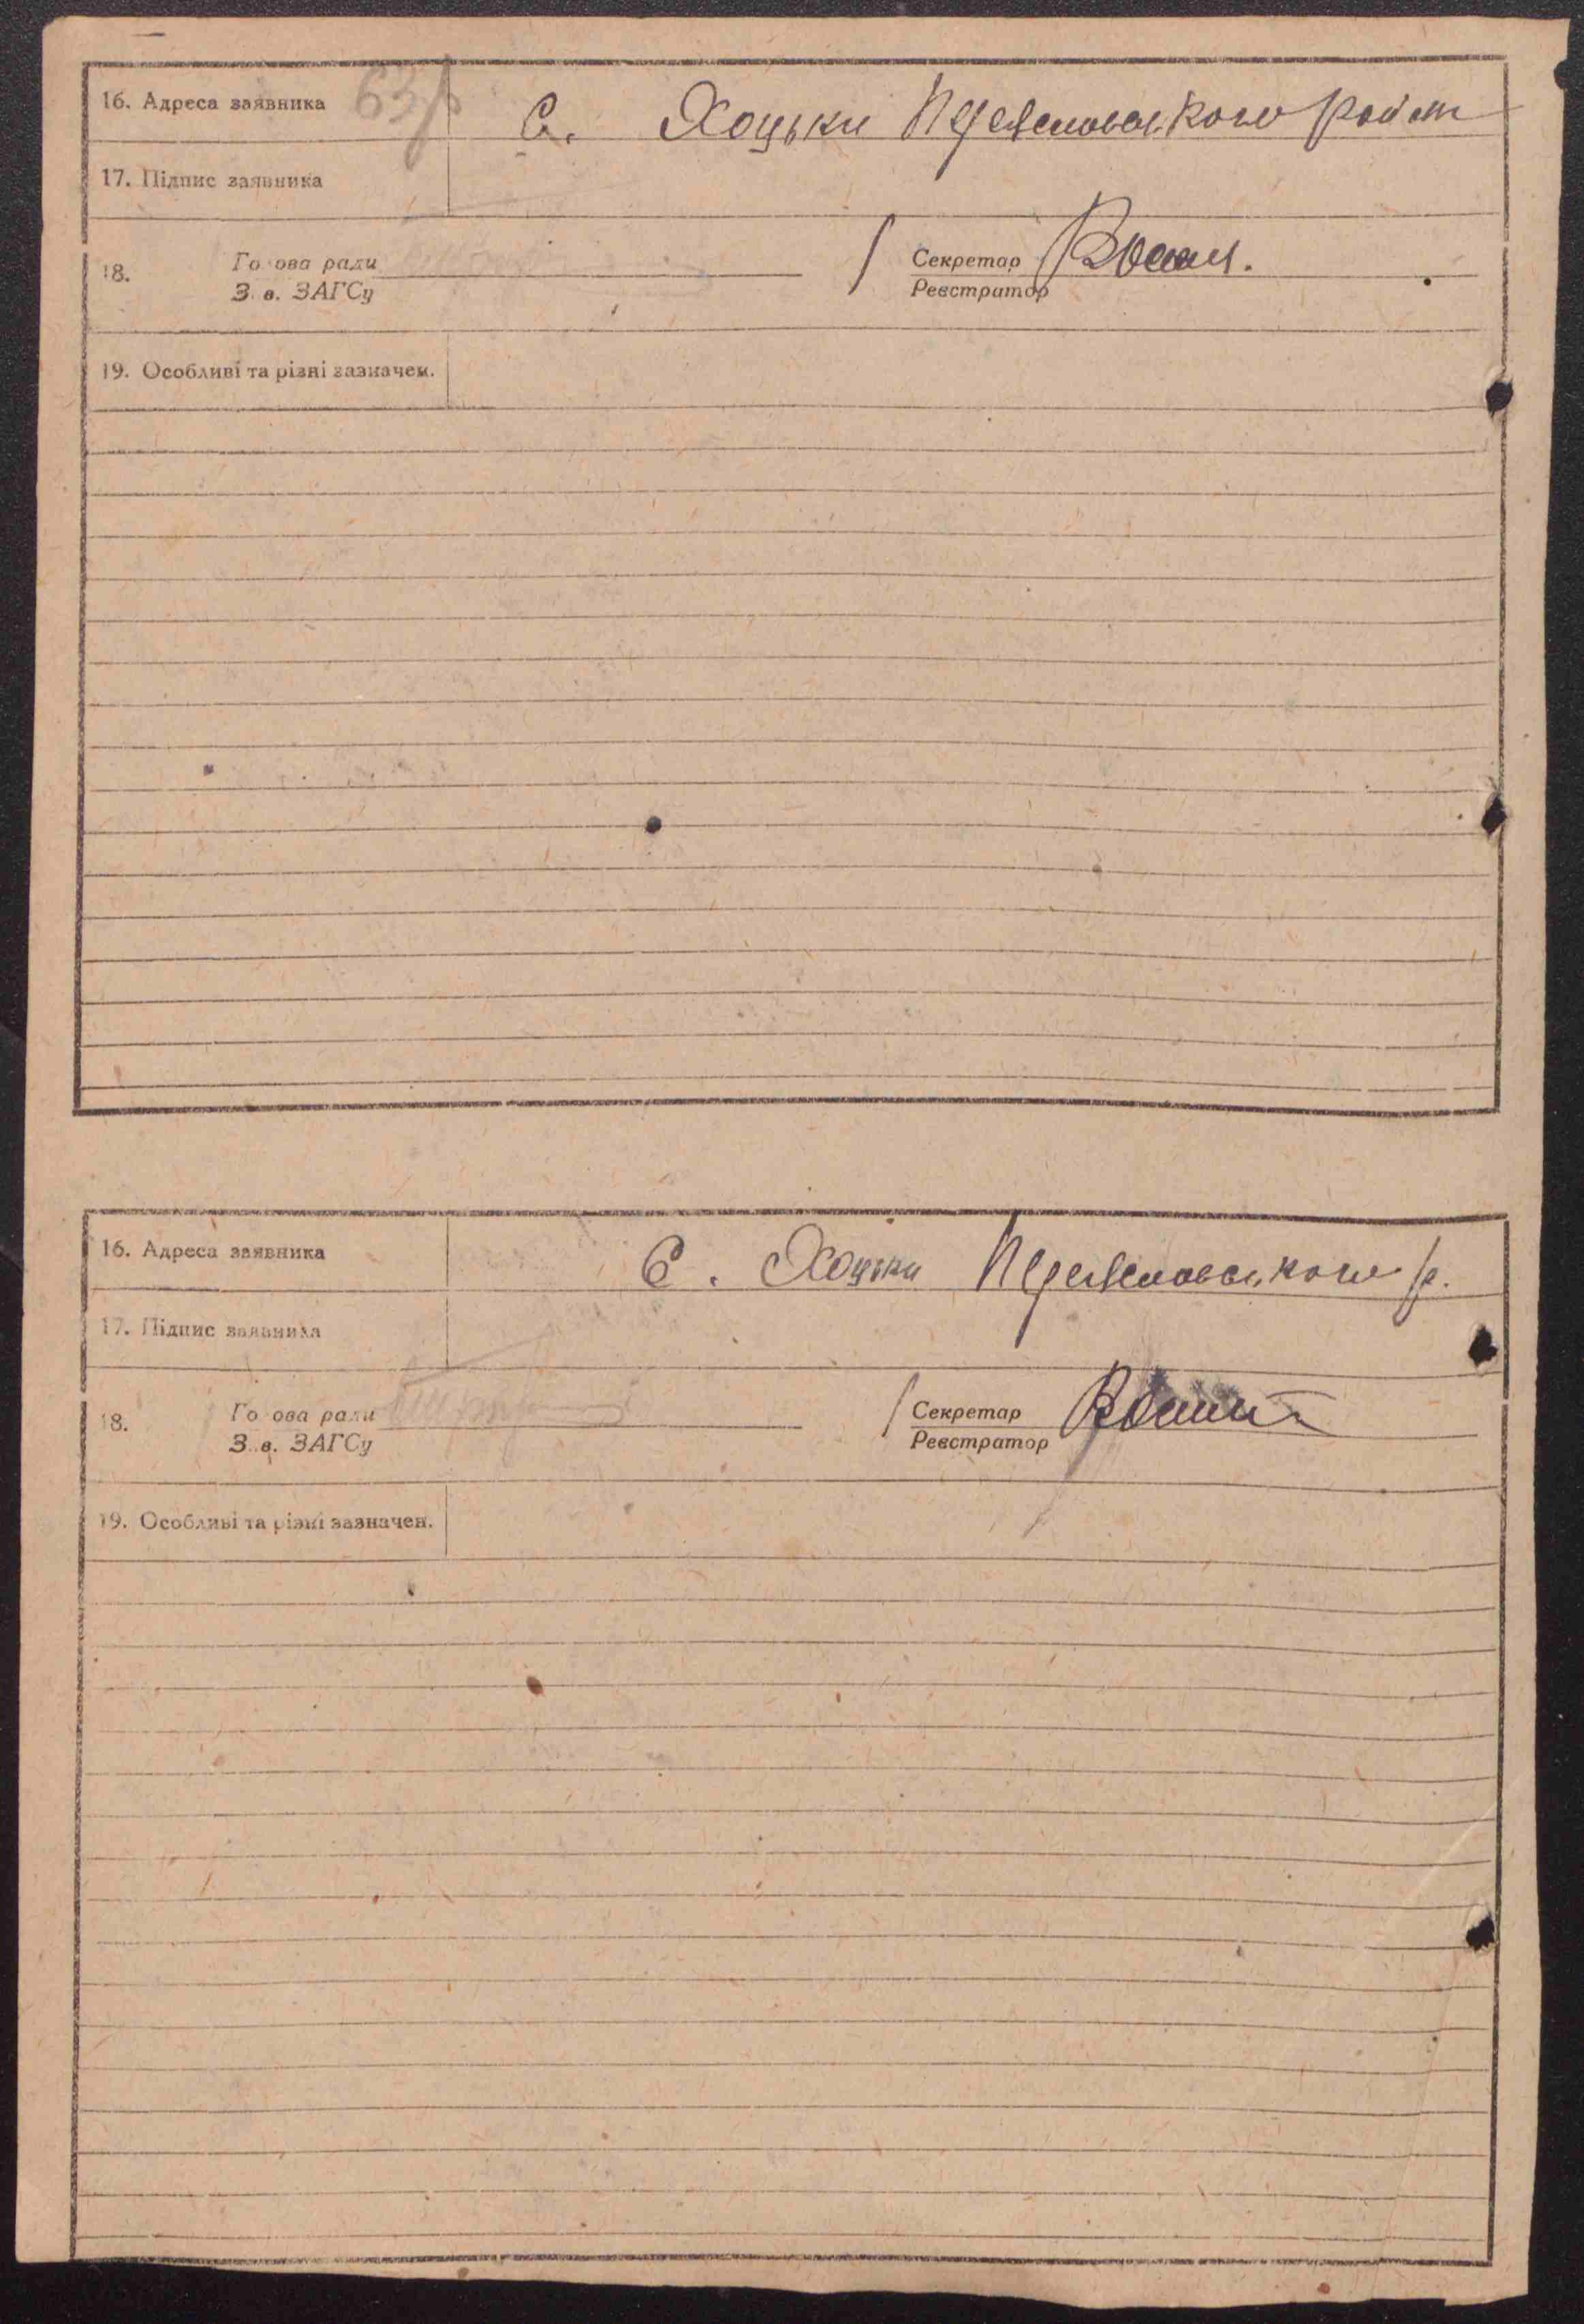 16. Адреса заявника 63 С. Хоцьки Переяславського район
17. Підпис заявника
18. Голова ради Секретар
З.в. ЗАГСу Реєстратор
19. Особливі та різні зазначен.
16. Адреса заявника С. Хоцьки Переяславського р.
17. Підпис заявника
18. Голова ради Секретар
З.в. ЗАГСу Реєстратор
19. Особливі та різні зазначен.